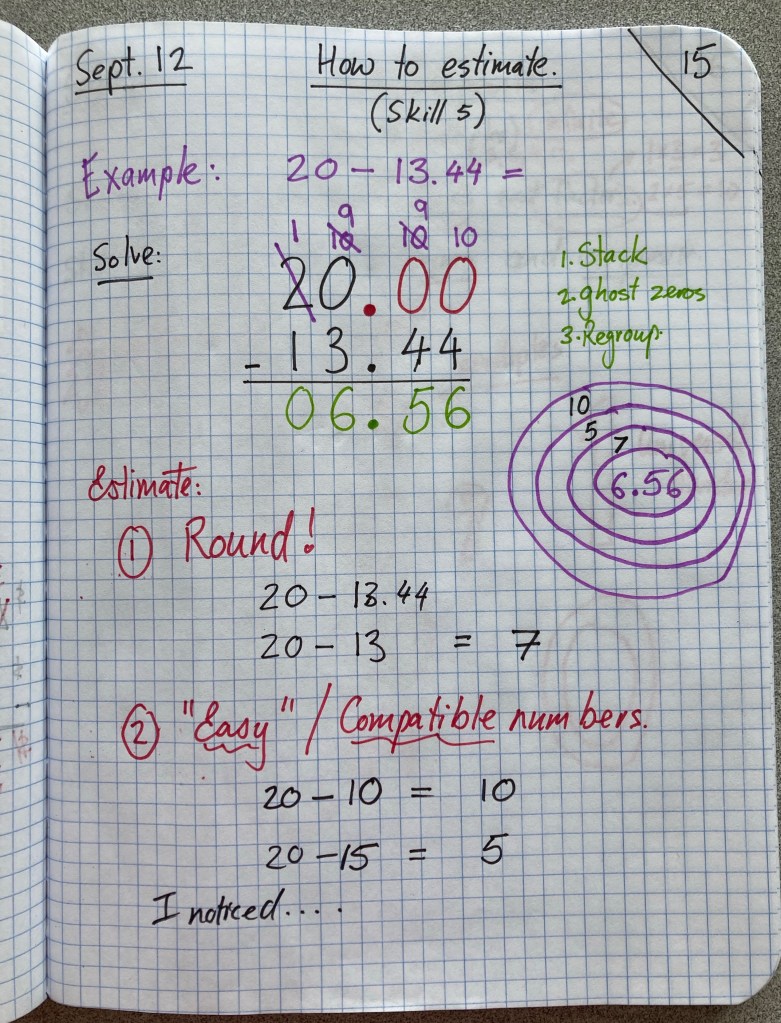 Sept. 12
How to estimate.
15
(Skill 5)
Example: 20 - 13.44 =
9 9
1 10 10 10
Solve:
20.00
- 13.44
06.56
1. Stack
2. ghost zeros
3. Regroup.
10
5
7
6.56
Estimate:
① Round!
20 - 13.44
20 - 13 = 7
② "Easy" / Compatible numbers.
20 - 10 = 10
20 - 15 = 5
I noticed....